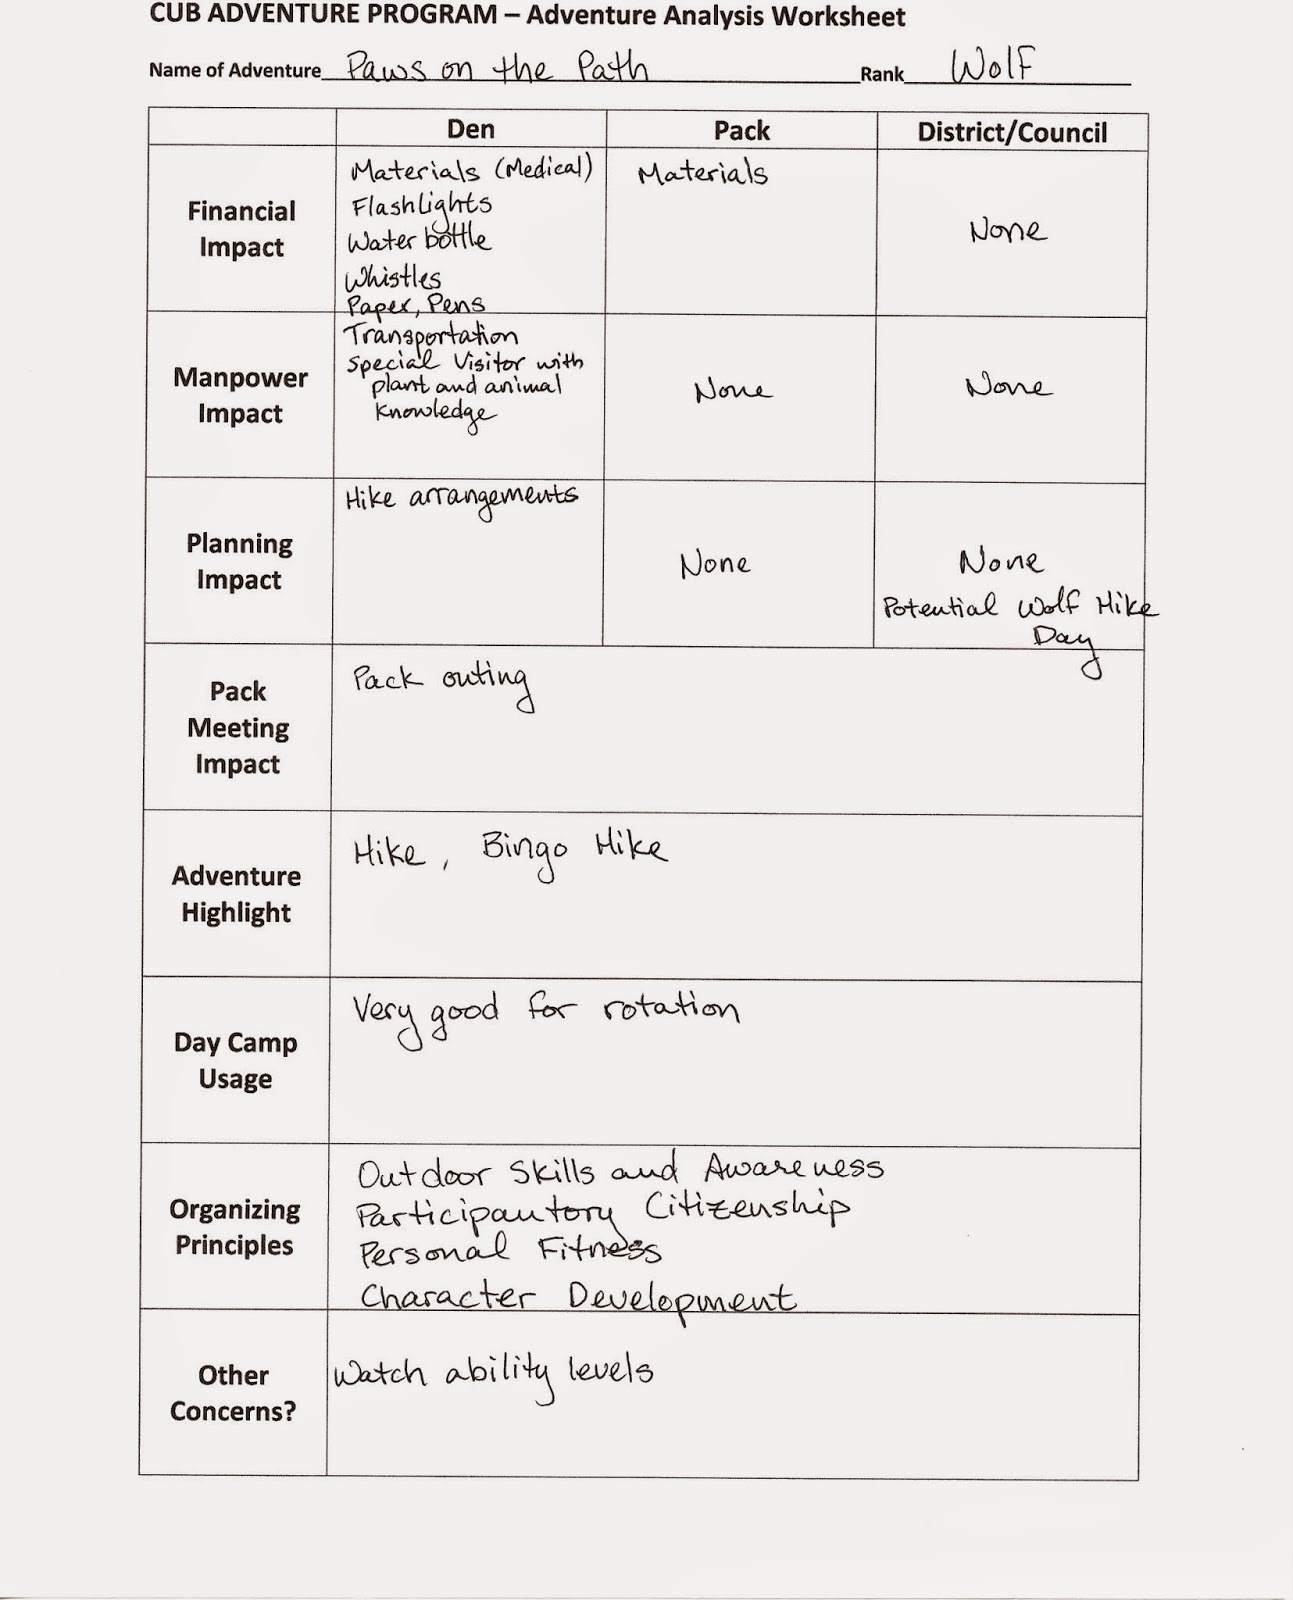 CUB ADVENTURE PROGRAM – Adventure Analysis Worksheet
Name of Adventure Paws on the Path Rank Wolf
Den Pack District/Council
Financial
Impact
Materials (Medical)
Flashlights
Water bottle
Whistles
Paper, Pens
Materials
None
Manpower
Impact
Transportation
Special Visitor with
plant and animal
knowledge
None
None
Planning
Impact
Hike arrangements
None
None
Potential Wolf Hike
Day
Pack
Meeting
Impact
Pack outing
Adventure
Highlight
Hike, Bingo Hike
Day Camp
Usage
Very good for rotation
Organizing
Principles
Outdoor Skills and Awareness
Participauntory Citizenship
Personal Fitness
Character Development
Other
Concerns?
Watch ability levels